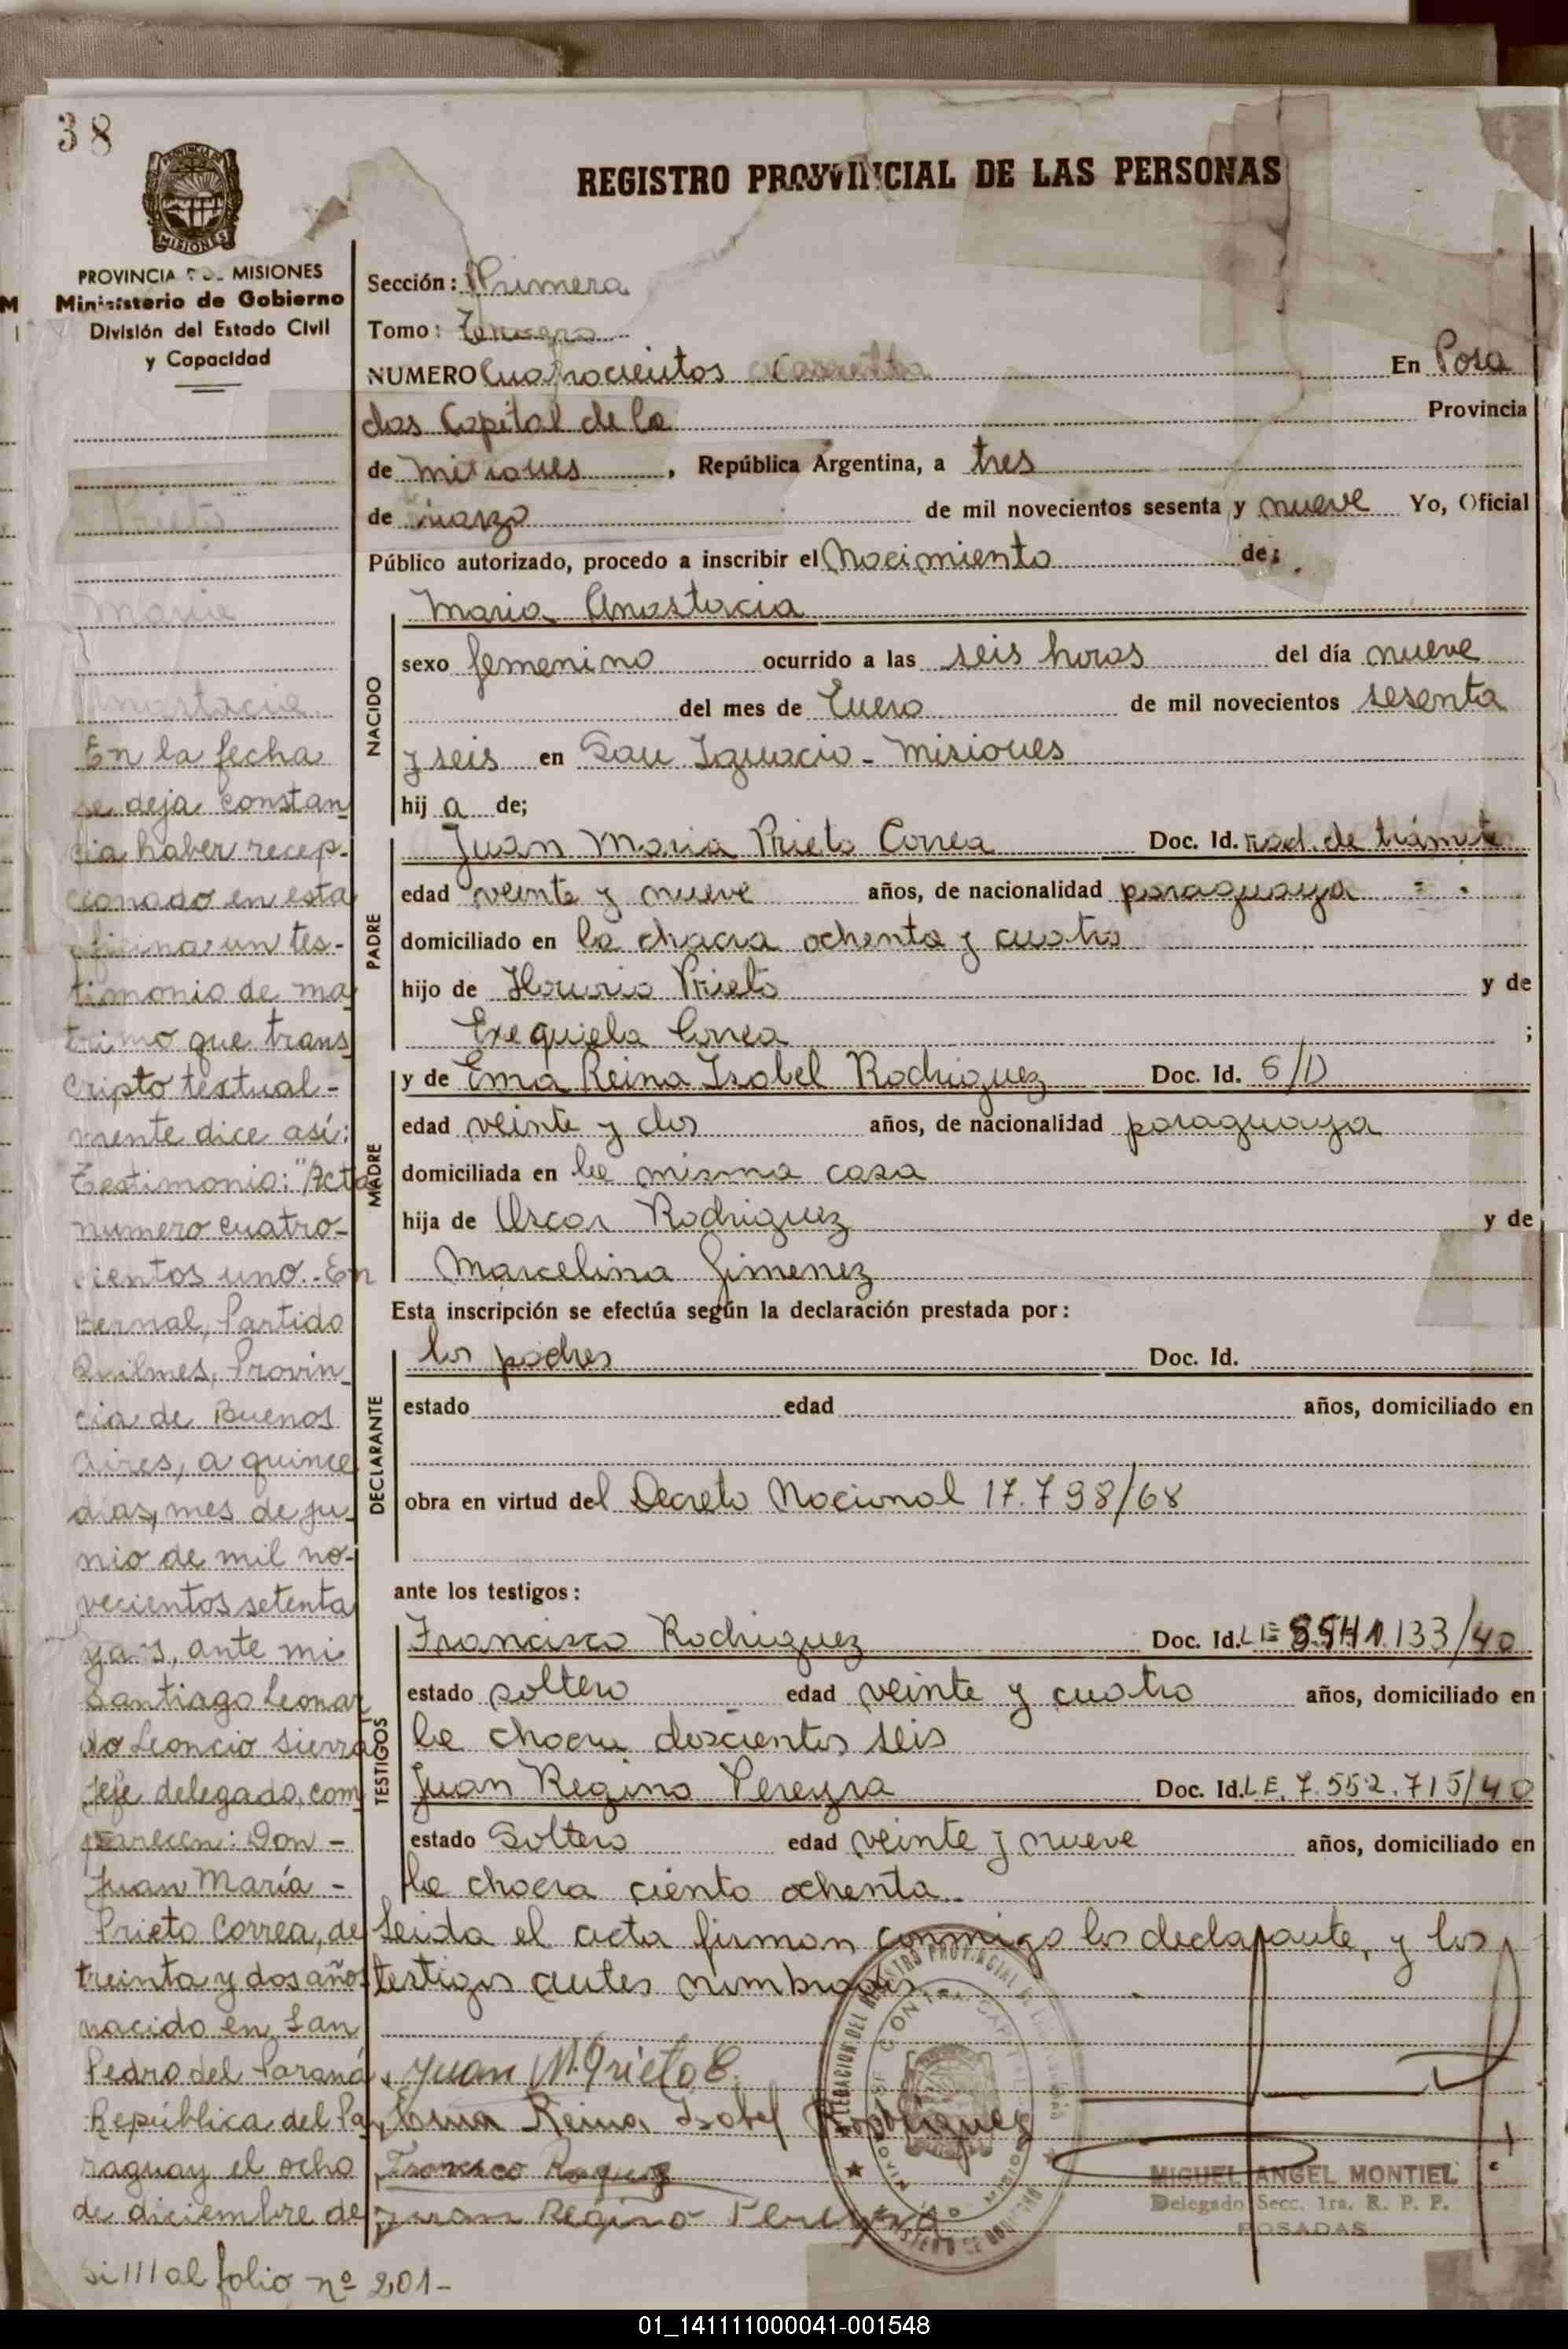 38
PROVINCIA DE MISIONES
MISIONES
PROVINCIA MISIONES
Ministerio de Gobierno
División del Estado Civil
y Capacidad
Maria
Anastacia
En la fecha
se deja constan
cia haber recep-
cionado en esta
oficina un tes-
timonio de ma
trimo que trans
cripto textual-
mente dice así:
Testimonio: "Acta
numero cuatro-
cientos uno. En
Bernal, Partido
Quilmes, Provin_
cia de Buenos
Aires, a quince
dias, mes de ju_
nio de mil no-
vecientos setenta
y , ante mi
Santiago Leonar
do Leoncio Sierra
Jefe delegado, com
parecen: Don -
Juan María -
Prieto Correa, de
treinta y dos años
nacido en San
Pedro del Paraná,
República del Pa
raguay el ocho
de diciembre de
si///al folio nº 201-
REGISTRO PROVINCIAL DE LAS PERSONAS
Sección: Primera
Tomo: Tercero
NUMERO Cuatrocientos En Posa
das Capital de la Provincia
de misiones, República Argentina, a tres
de marzo de mil novecientos sesenta y nueve Yo, Oficial
Público autorizado, procedo a inscribir el Nacimiento de;
NACIDO
Maria Anastacia
sexo femenino ocurrido a las seis horas del día nueve
del mes de Enero de mil novecientos sesenta
y seis en San Ignacio - Misiones
hij a de;
PADRE
Juan Maria Prieto Correa Doc. Id. rad. de trámite
edad veinte y nueve años, de nacionalidad paraguaya
domiciliado en la chacra ochenta y cuatro
hijo de Prieto y de
Exequiela Correa ;
MADRE
y de Ema Reina Isabel Rodriguez Doc. Id. S/D
edad veinte y dos años, de nacionalidad paraguaya
domiciliada en la misma casa
hija de Oscar Rodriguez y de
Marcelina Gimenez
Esta inscripción se efectúa según la declaración prestada por:
DECLARANTE
los padres Doc. Id.
estado edad años, domiciliado en
obra en virtud del Decreto Nacional 17.798/68
ante los testigos:
TESTIGOS
Francisco Rodriguez Doc. Id. LE 133/40
estado soltero edad veinte y cuatro años, domiciliado en
la chacra doscientos seis
Juan Regino Pereyra Doc. Id. LE. 7.552.715/40
estado Soltero edad veinte y nueve años, domiciliado en
la chacra ciento ochenta.
Leida el acta firman conmigo los declarante, y los
testigos antes nombrados
Juan M. Prieto C.
Ema Reina Isabel Rodriguez
Juan Regino Pereyra
MIGUEL ANGEL MONTIEL
Delegado Secc. 1ra. R. P. P.
POSADAS
01_141111000041-001548